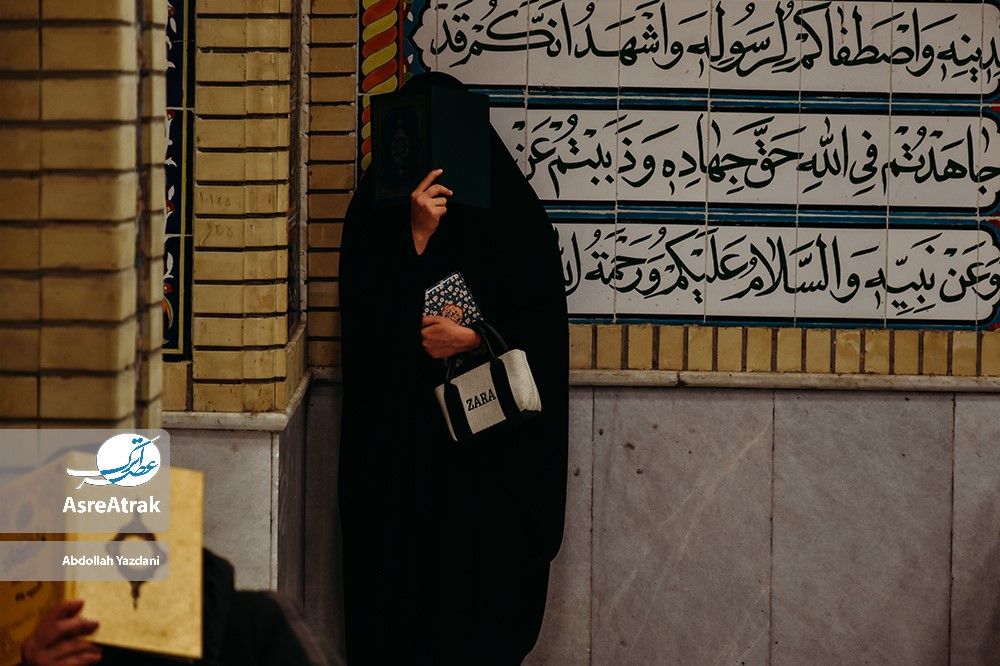 لِدِينِهِ وَاصْطَفَاكُمْ لِرَسُولِهِ وَاَشْهَدُ اَنَّكُمْ قَدْ
جَاهَدْتُمْ فِي اللهِ حَقَّ جِهَادِهِ وَذَبَبْتُمْ عَنْ
وَعَنْ نَبِيِّهِ وَالسَّلَامُ عَلَيْكُمْ وَرَحْمَةُ
ZARA
عصر اترک
AsreAtrak
Abdollah Yazdani